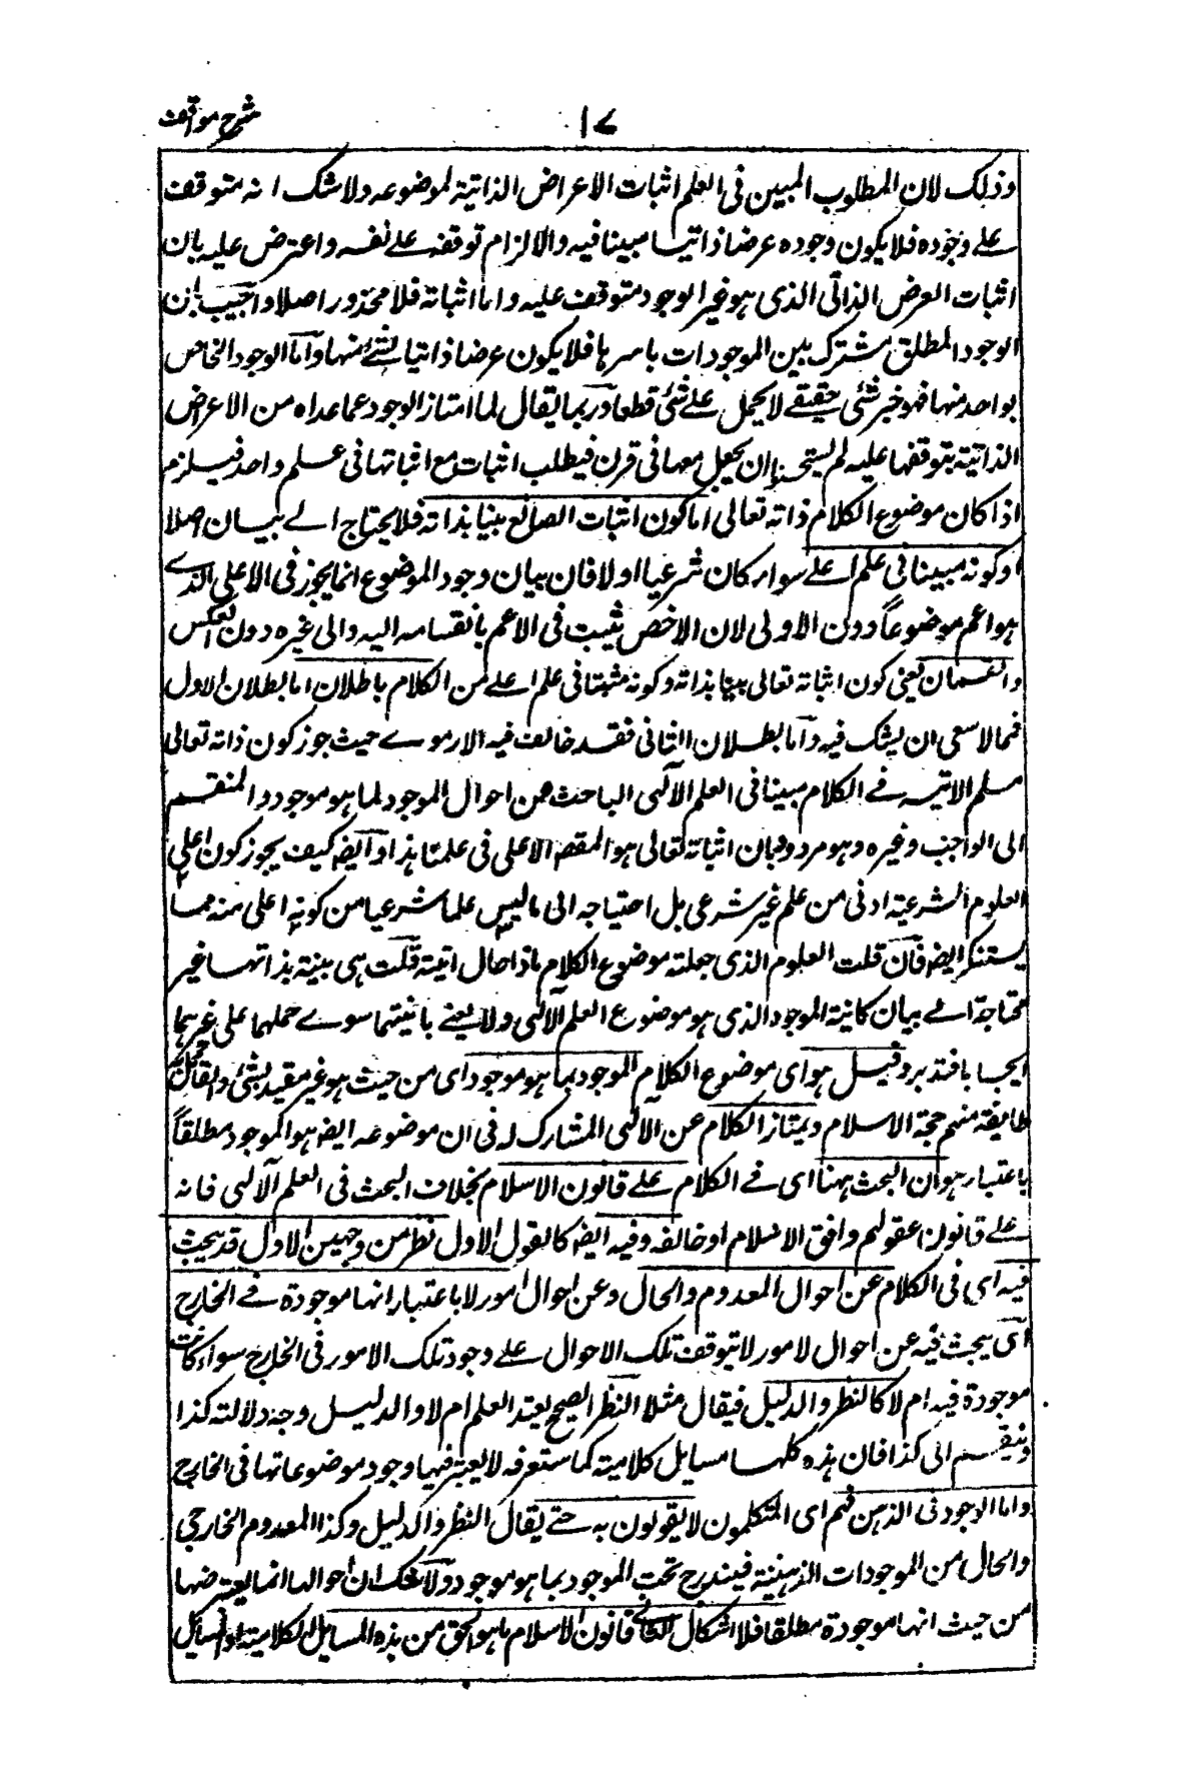 شرح مواقف
١٧
وذلك لان المطلوب المبين فى العلم اثبات الاعراض الذاتية لموضوعه ولا شك انه متوقف
على وجوده فلا يكون وجوده عرضا ذاتيا مبينا فيه والا لزم توقفه على نفسه واعترض عليه بان
اثبات العرض الذاتى الذى هو غير الوجود متوقف عليه واما اثباته فلا محذور اصلا واجيب بان
الوجود المطلق مشترك بين الموجودات باسرها فلا يكون عرضا ذاتيا لشئ منها واما الوجود الخاص
بواحد منها فهو جزئى حقيقى لا يحمل على شئ قطعا وربما يقال لما امتاز الوجود عما عداه من الاعراض
الذاتية بتوقفها عليه لم يستحسنوا ان يجعل معها فى قرن فيطلب اثباته مع اثباتها فى علم واحد فيلزم
اذا كان موضوع الكلام ذاته تعالى اما كون اثبات الصانع بينا بذاته فلا يحتاج الى بيان اصلا
او كونه مبينا فى علم اعلى سواء كان شرعيا او لا فان بيان وجود الموضوع انما يجوز فى الاعلى الذى
هو اعم موضوعا دون الادنى لان الاخص يثبت فى الاعم بانقسامه اليه والى غيره دون العكس
والقسمان يعنى كون اثباته تعالى بينا بذاته وكونه مثبتا فى علم اعلى من الكلام باطلان اما بطلان الاول
فمما لا ينبغى ان يشك فيه واما بطلان الثانى فقد خالف فيه الارموى حيث جوز كون ذاته تعالى
مسلم الانية فى الكلام مبينا فى العلم الآلهى الباحث عن احوال الموجود بما هو موجود والمنقسم
الى الواجب وغيره وهو مردود بان اثباته تعالى هو المقصد الاعلى فى علمنا هذا وايضا كيف يجوز كون اعلى
العلوم الشرعية ادنى من علم غير شرعى بل احتياجه الى ما ليس علما شرعيا من كونه اعلى منه مما
يستنكر ايضا فان قلت العلوم الذى جعلته موضوع الكلام ماذا حال انيته قلت هى بينة بذاتها غير
محتاجة الى بيان كانية الموجود الذى هو موضوع العلم الآلهى ولا يعنى بانيتهما سوى حملهما على غيرهما
ايجابا فتدبر وقيل هو اى موضوع الكلام الموجود بما هو موجود اى من حيث هو غير مقيد بشئ والقائل
طايفة منهم حجة الاسلام ويمتاز الكلام عن الآلهى المشارك له فى ان موضوعه ايضا هو الموجود مطلقا
باعتبار هو ان البحث ههنا اى فى الكلام على قانون الاسلام بخلاف البحث فى العلم الآلهى فانه
على قانون عقولهم وافق الاسلام او خالفه وفيه ايضا كالقول الاول نظر من وجهين الاول قد يبحث
فيه اى فى الكلام عن احوال المعدوم والحال وعن احوال امور لا باعتبار انها موجودة فى الخارج
اى يبحث فيه عن احوال لامور لا يتوقف تلك الاحوال على وجود تلك الامور فى الخارج سواء كانت
موجودة فيه ام لا كالنظر والدليل فيقال مثلا النظر الصحيح يفيد العلم ام لا والدليل وجه دلالته كذا
وينقسم الى كذا فان هذه كلها مسايل كلامية كما ستعرفه لا يعتبر فيها وجود موضوعاتها فى الخارج
واما الوجود فى الذهن فهم اى المتكلمون لا يقولون به حتى يقال النظر والدليل وكذا المعدوم الخارجى
والحال من الموجودات الذهنية فيندرج تحت الموجود بما هو موجود ولا شك ان احوالها انما يعترضها
من حيث انها موجودة مطلقا فلا اشكال الثانى قانون الاسلام ما هو الحق من هذه المسايل الكلامية اذ المسايل